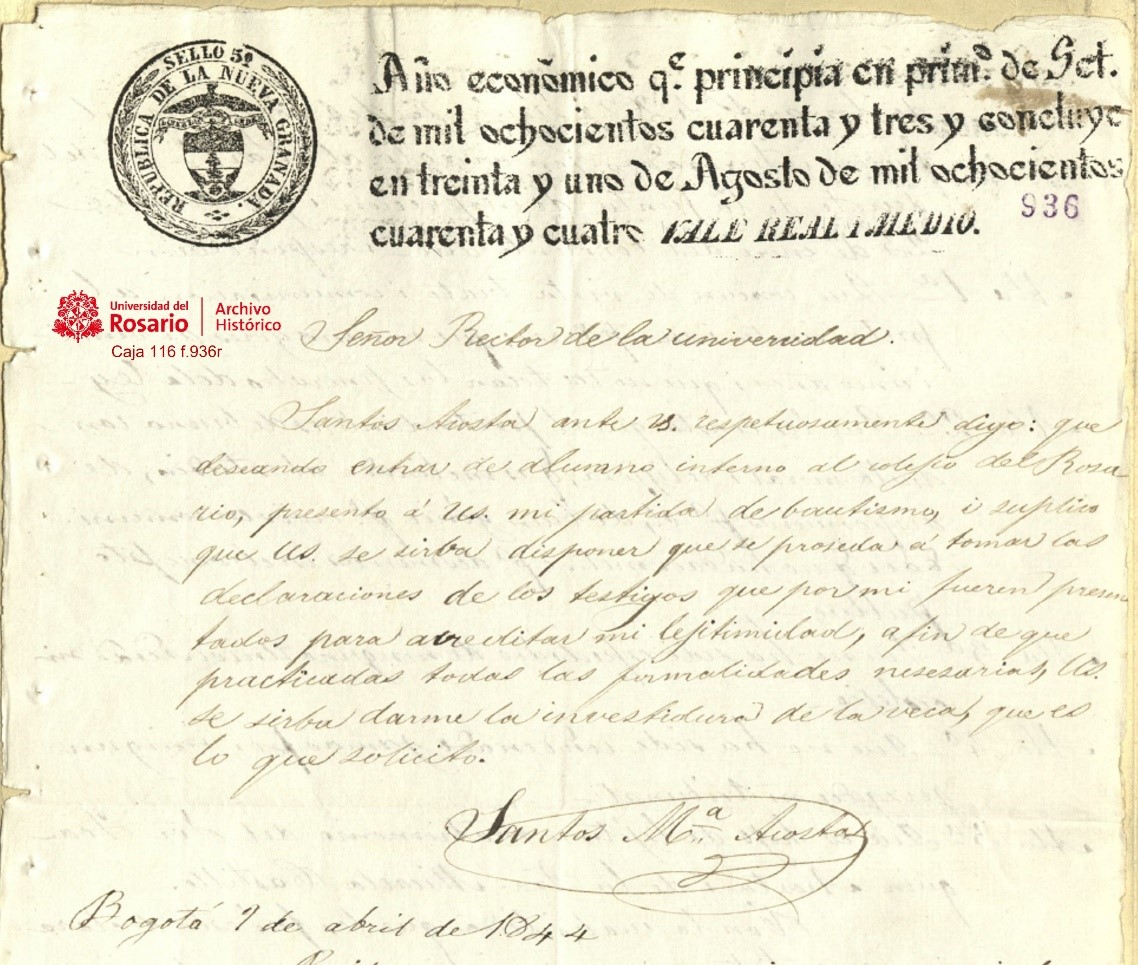 SELLO 5º
REPUBLICA DE LA NUEVA GRANADA.
Año económico q.e principia en prim.o de Set.
de mil ochocientos cuarenta y tres y concluye
en treinta y uno de Agosto de mil ochocientos
cuarenta y cuatro VALE REAL I MEDIO.
936
Universidad del
Rosario
Archivo
Histórico
Caja 116 f.936r
Señor Rector de la universidad.
Santos Acosta ante us. respetuosamente digo: que
deseando entrar de alumno interno al colejio del Rosa
rio, presento á Us. mi partida de bautismo, i suplico
que Us. se sirba disponer que se proseda á tomar las
declaraciones de los testigos que por mi fueren presen
tados para acreditar mi lejitimidad, a fin de que
practicadas todas las formalidades nesesarias, Us.
se sirba darme la investidura de la veca, que es
lo que solicito.
Santos M.a Acosta
Bogotá de abril de 1844